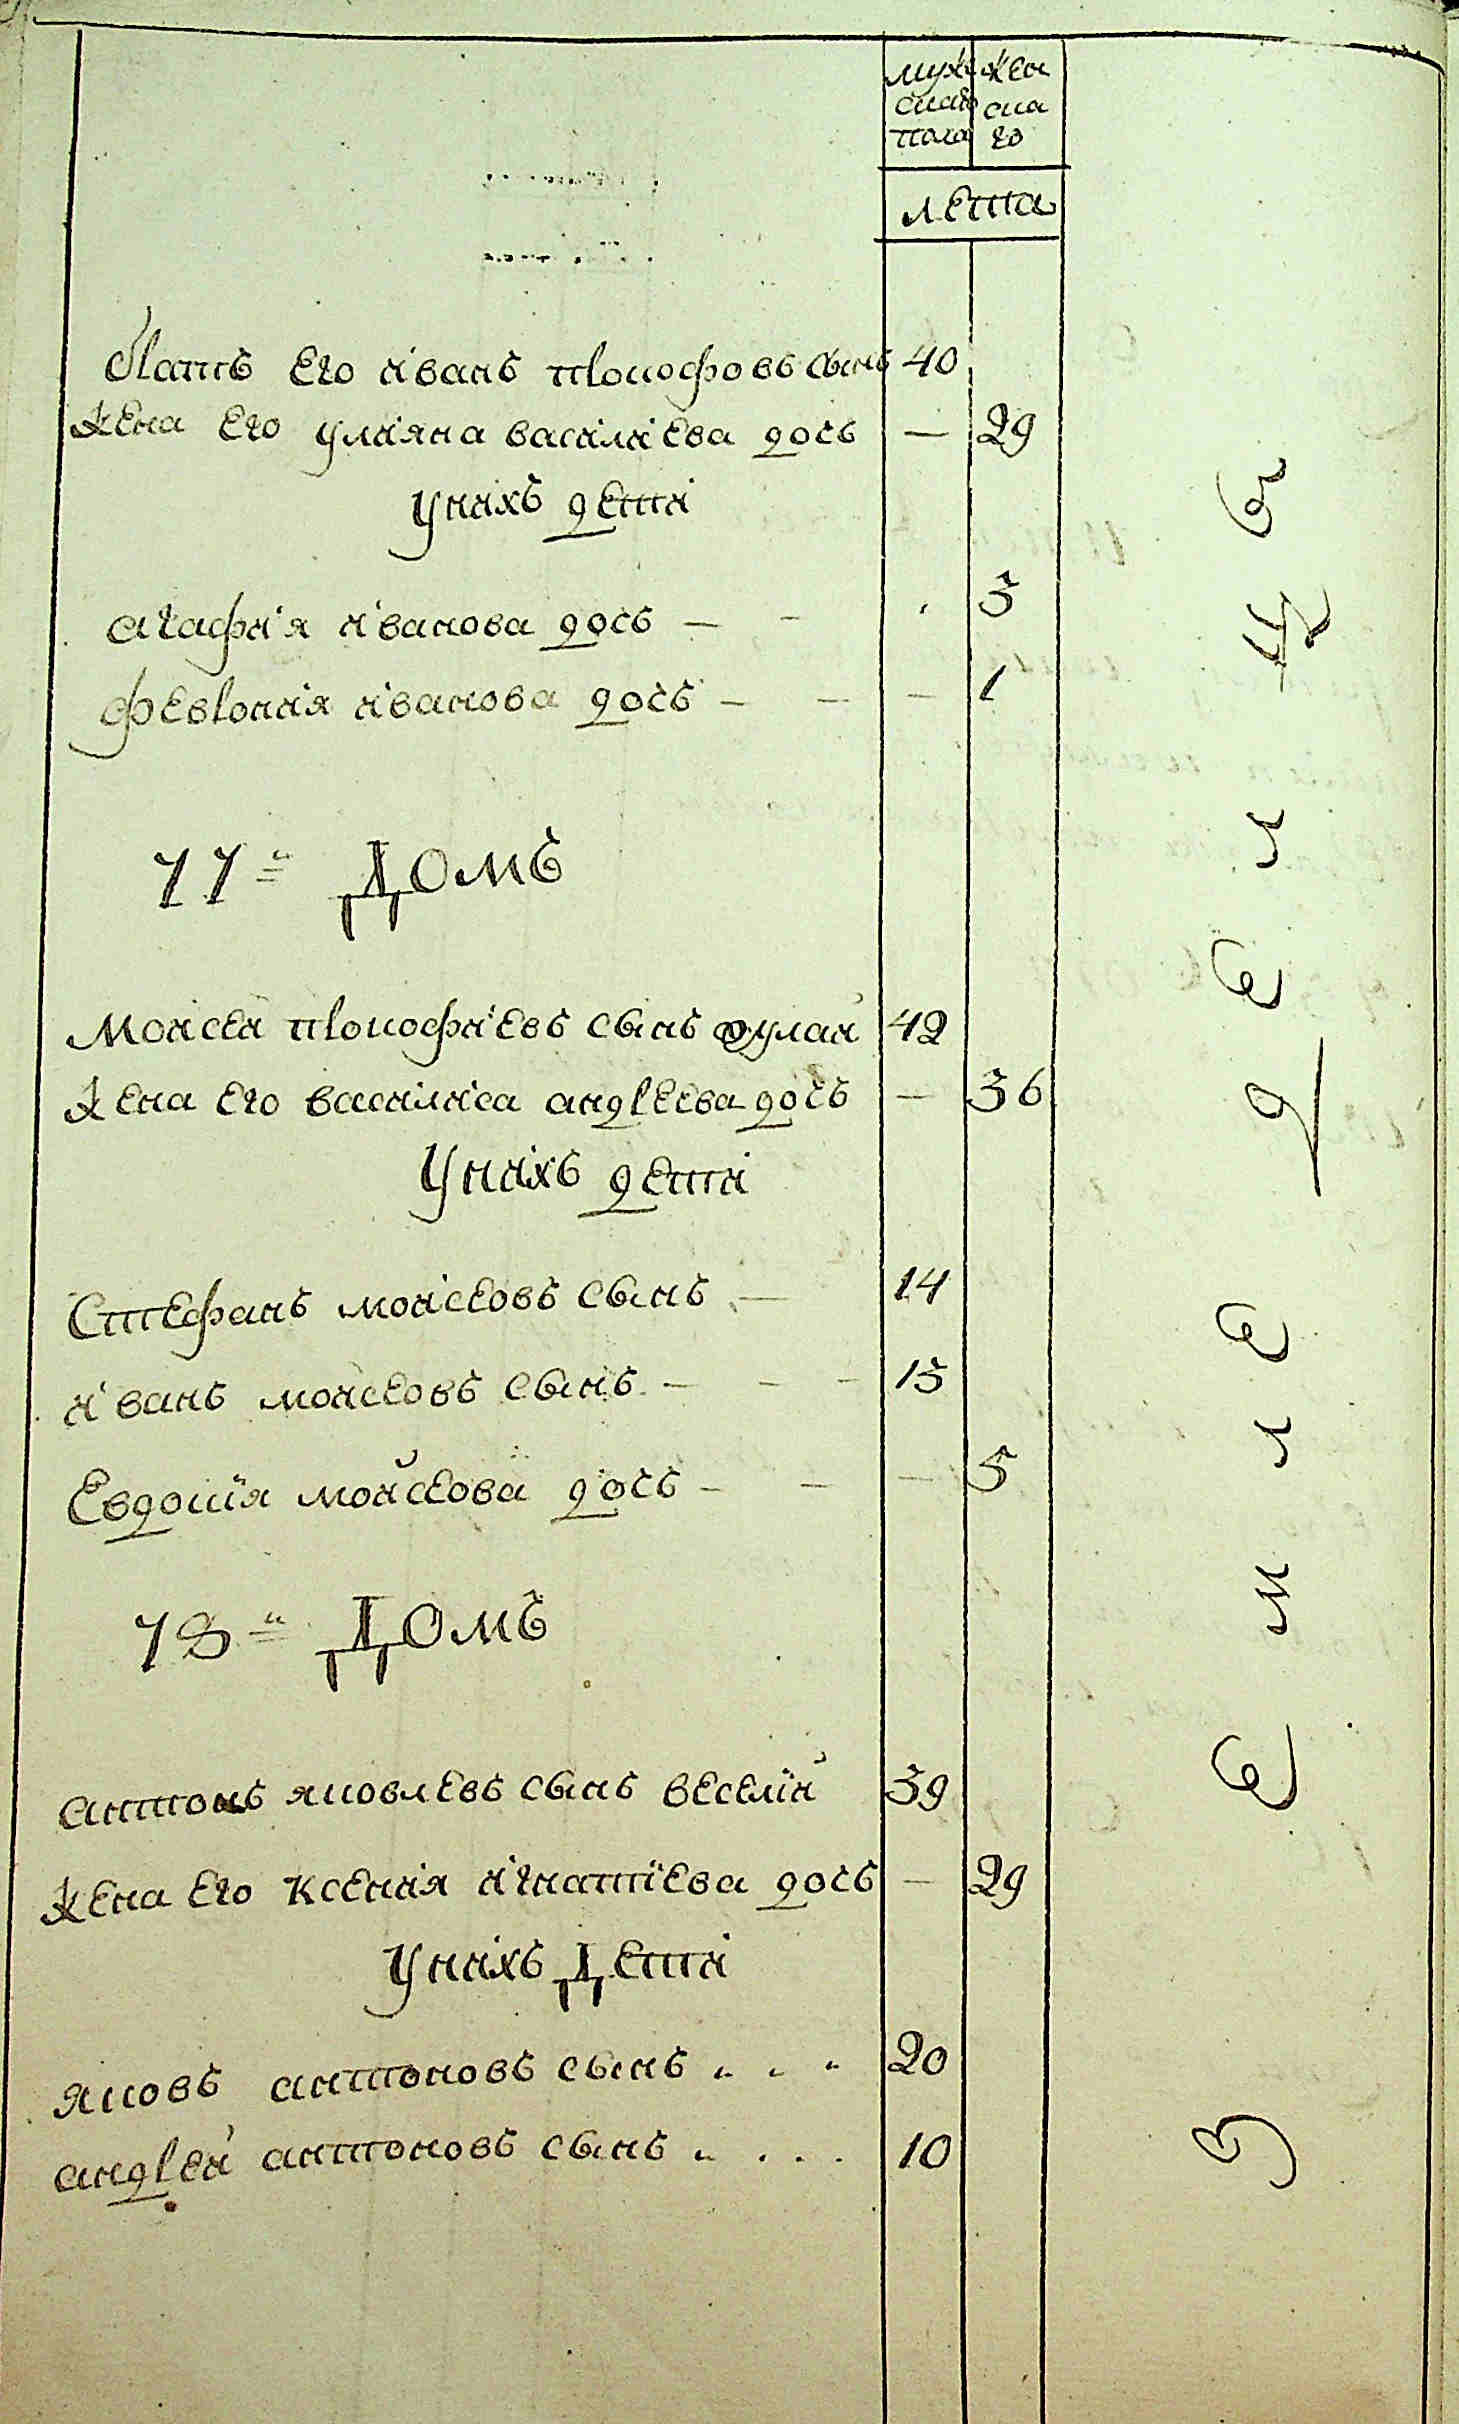 мужескаго пола
женскаго
лета
братъ его иванъ прокофовъ сынъ 40
жена его улияна василиева дочь — 29
у нихъ дети
агафия иванова дочь — - 3
феврония иванова дочь - — - 1
77й домъ
моисей прокофиевъ сынъ дулай 42
жена его василиса андреева дочь — 36
у нихъ дети
стефанъ моисеовъ сынъ — 14
иванъ моисеовъ сынъ - - - 13
евдокия моисеова дочь - — - 5
78й домъ
антонъ яковлевъ сынъ веселий 39
жена его ксения игнатиева дочь — 29
у нихъ дети
яковъ антоновъ сынъ 20
андрей антоновъ сынъ 10
земледелецъ